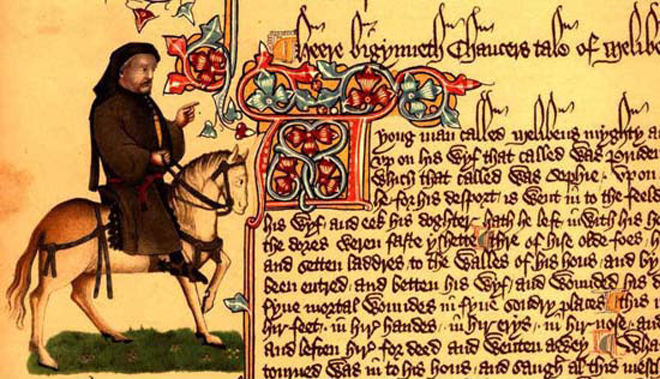 Heere bigynneth Chaucers tale of Melibe
A yong man called Melibeus myghty a
vp on his wyf that called was Pruden
which that called was Sophie . Vpon
he for his desport is went in to the feeld
his wyf and eek his doghter hath he left in with his ho
the dores weren faste yshette thre of hise olde foes h
and setten laddres to the walles of his hous and by
been entred and betten his wyf and wounded his d
fyue mortal woundes in fyue sondry places this i
hir feet . in hir handes . in hir erys . in hir nose . and
and leften hir for deed and wenten awey Wha
tourned was in to his hous and saugh al this mesch